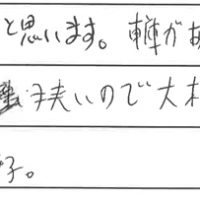 と思います。 が
狭いので大
子。